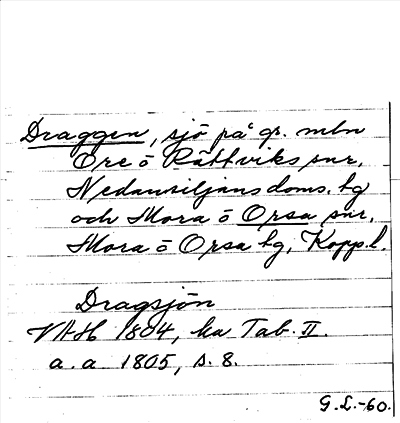 Draggen, sjö på gr. mln
Ore o Rättviks snr,
Nedansiljans doms. hg
och Mora o Orsa snr,
Mora o Orsa hg, Kopp.l.
Dragsjön
VAH 1804, ka Tab. II.
a. a. 1805, s. 8.
G.L.-60.